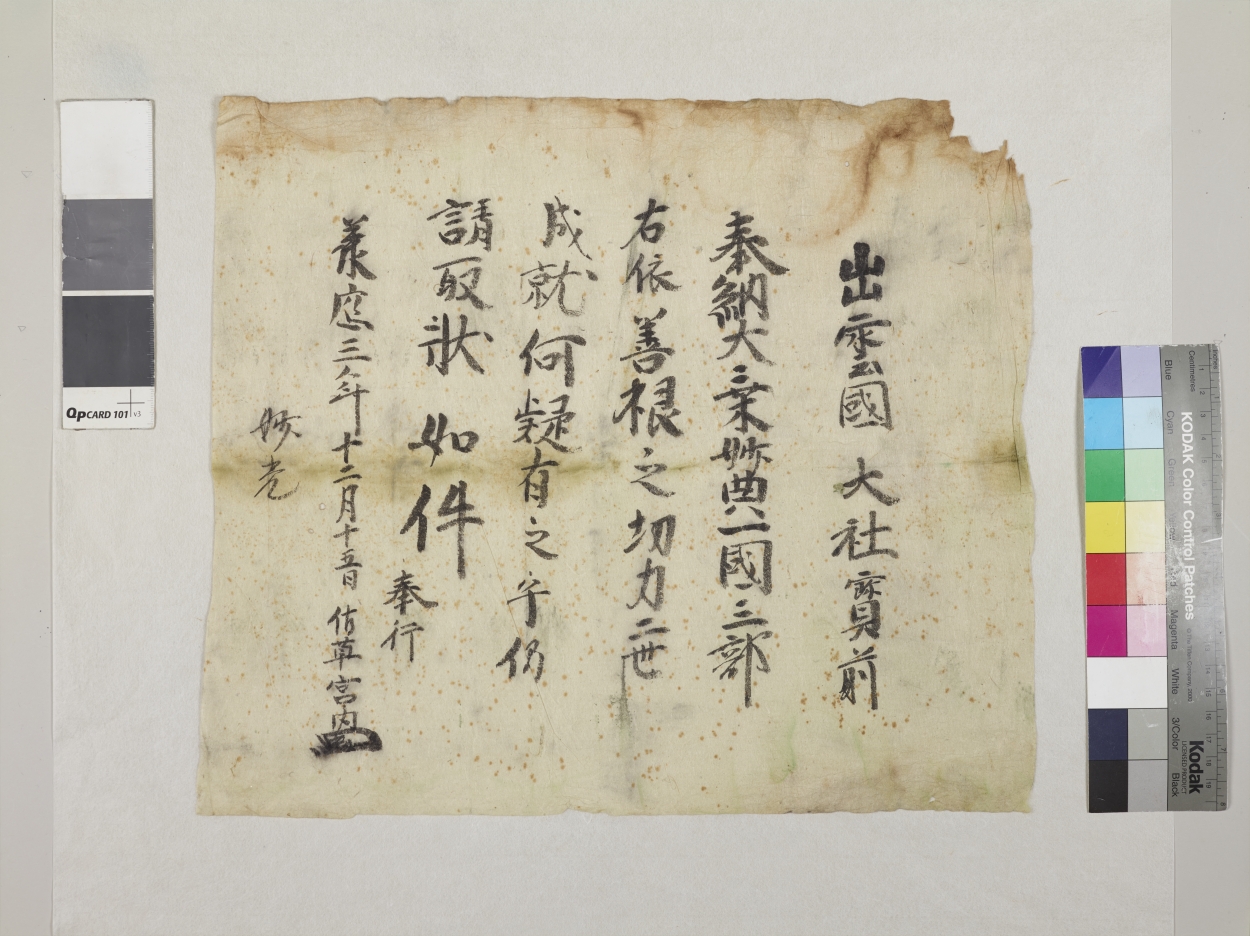 出雲國 大社寳前
奉納大乗妙典一國三部
右依善根之功力二世
成就何疑有之乎仍
請取状如件
奉行
承應三年十二月十五日 佐草宮内
妙光
QPCARD 101 v3
KODAK Color Control Patches
Blue Cyan Green Red Magenta White 3/Color Black
Kodak
LICENSED PRODUCT
Centimetres
Inches